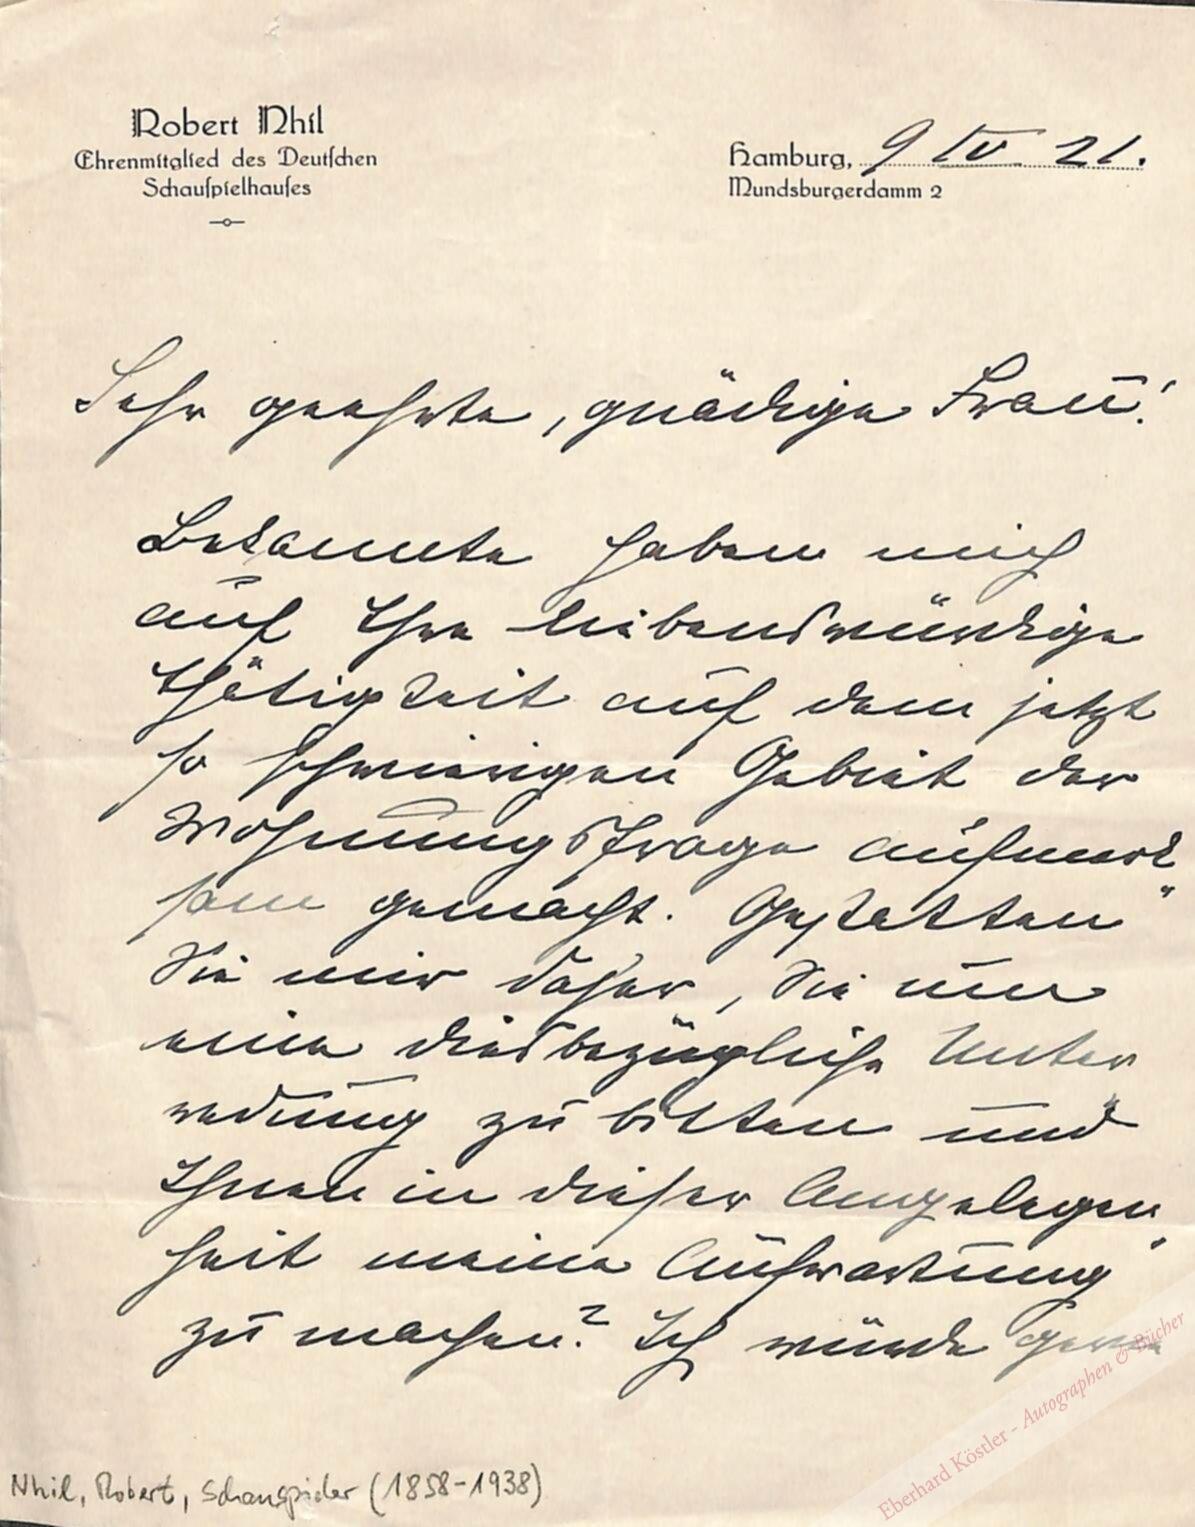 Robert Nhil
Ehrenmitglied des Deutschen
Schauspielhauses
Hamburg, 9 IV 21.
Mundsburgerdamm 2
Sehr geehrte, gnädige Frau!
Bekannte haben mich
auf Ihre liebenswürdige
Thätigkeit auf dem jetzt
so schwierigen Gebiet der
Wohnungsfrage aufmerk
sam gemacht. Gestatten
Sie mir daher, Sie um
eine diesbezügliche Unter
redung zu bitten und
Ihnen in dieser Angelegen
heit meine Aufwartung
zu machen? Ich würde gerne
Nhil, Robert, Schauspieler (1858-1938)
Eberhard Köstler - Autographen & Bücher